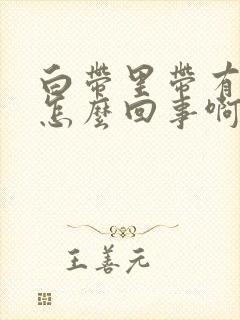 白帶里帶有
怎麼回事啊
王善元